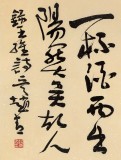 一杯酒西出
陽關無故人
王維詩